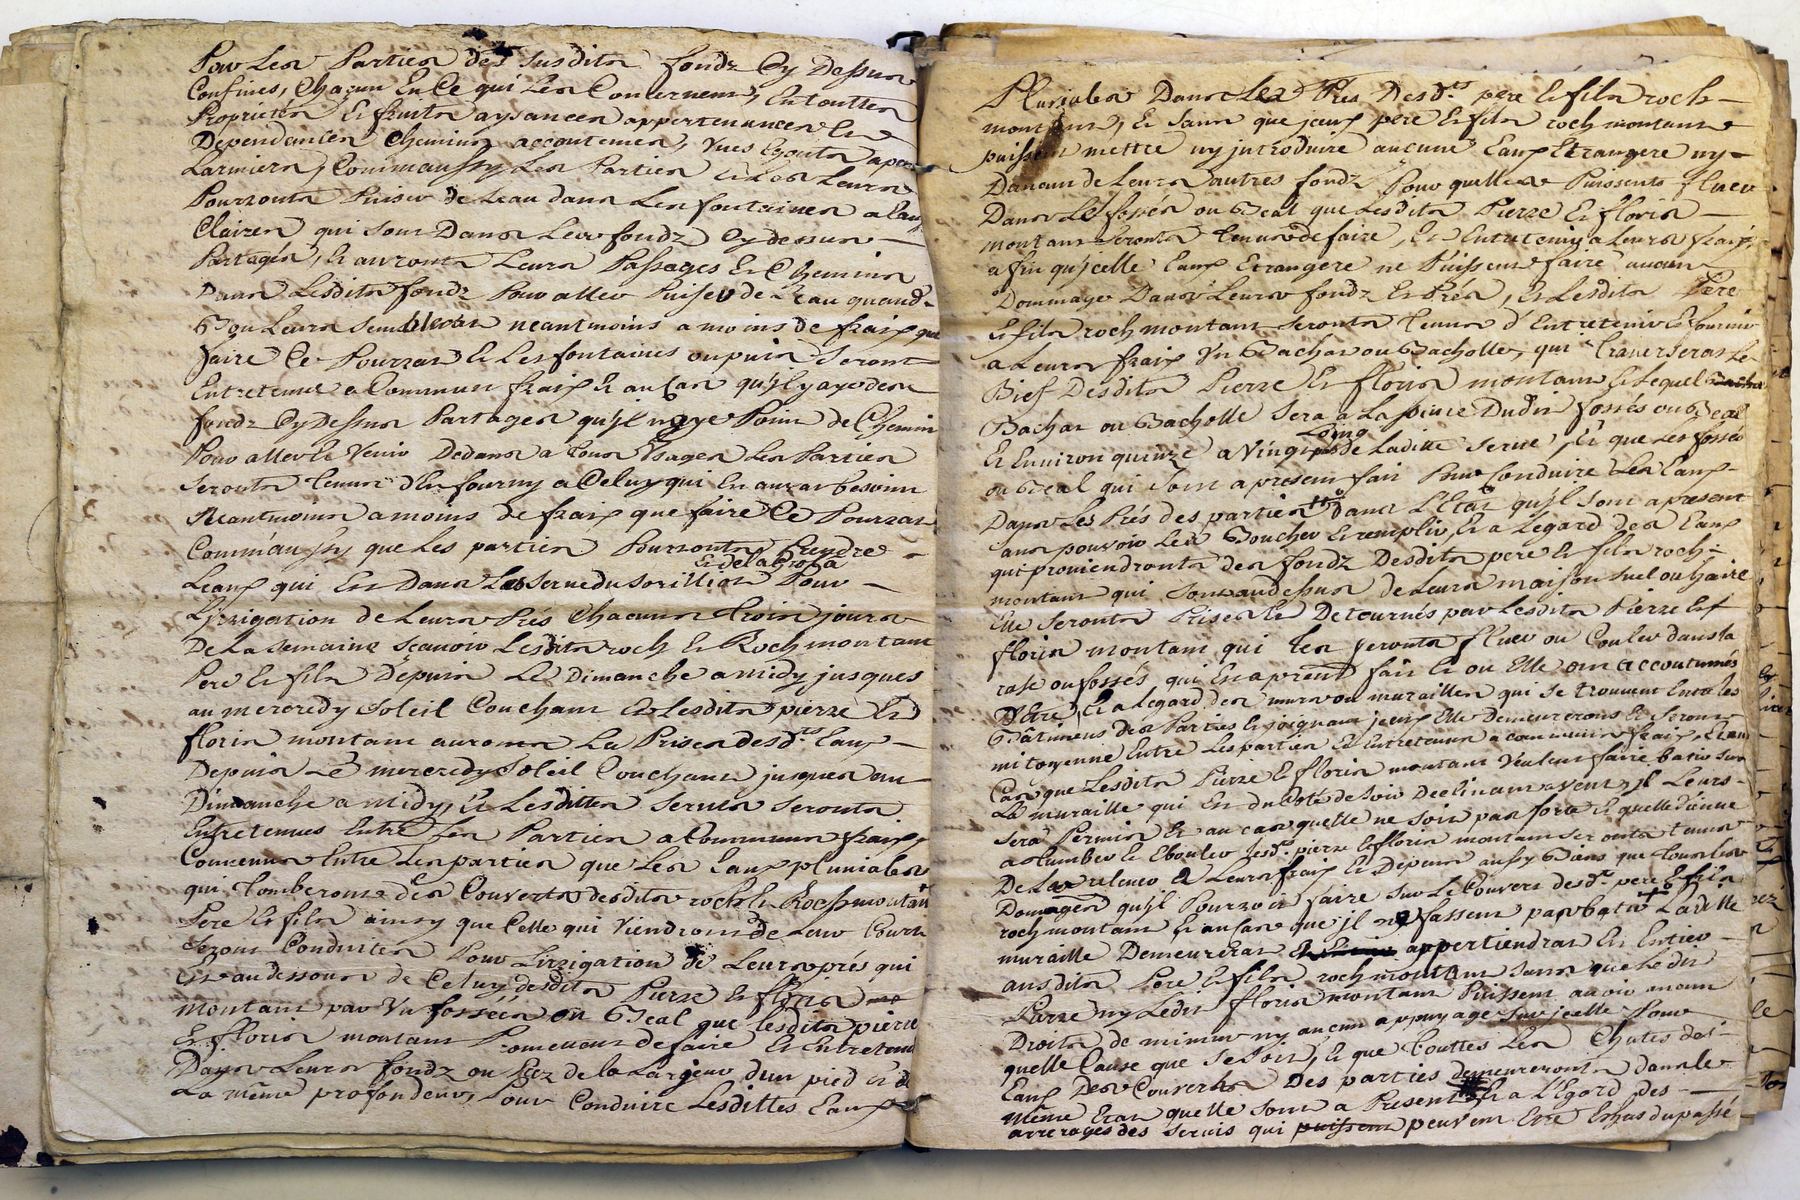 Pour Les Parties des susdits fondz Cy Dessus
Confinés, Chaqun En Ce qui Les Concernent, En touttes
Proprietés Et fruits aysances appertenances Et
Dependances Chemins accoutemes, Vues Egouts
Larmiers, Comm'aussy Les Parties
Pourronts Puiser de Leau dans Les fontaines a Eaux
Claires qui sont Dans Leur fondz Cy dessus
Partagés, Et auronts Leurs Passages Et Chemins
Dans Lesdits fondz Pour aller Puiser de L'eau quand
Bon Leurs semblerat neantmoins a moins de fraix que
faire Ce Pourrat Et Les fontaines ou puis seront
Entretenue a Commun fraix Et au Cas qu'il y aye des
fondz Cy Dessus Partages qu'il n'aye Point de Chemin
Pour aller Et Venir Dedans a tous Usages Les Parties
seronts tenus d'En fourny a Celuy qui En aurat besoins
Neantmoins a moins de fraix que faire Ce Pourrat
Comm'aussy que Les parties Pourronts Prendre
Leaux qui Est Dans La serve du sorillion Pour
L'irrigation de Leurs Prés Chacuns trois jours
De La semaine scauoir Lesdits roch Et Roch montant
Pere Et fils Depuis Le Dimanche a midy jusques
au mercredy Soleil Couchant Et Lesdits pierre Et
floris montant auronts La Prises desd.tes Eaux
Depuis Le mercredy Soleil Couchant jusques au
Dimanche a midy, Et Lesdittes serves seronts
Entretenues Entre Les Parties a Commun fraix,
Convenus Entre Les parties que Les Eaux pluviables
qui tomberons des Couverts desdits roch Et Roch montant
Pere Et fils ainsy que Celle qui Viendrons de Leur Court
seront Conduites Pour L'irrigation de Leurs prés qui
Est au dessous de Celuy desdits Pierre Et floris
montant par Un fossés ou Beal que lesdits pierre
Et floris montant Promettent de faire Et Entretenir
Dans Leurs fondz ou prez de la Largeur d'un pied Et de
La même profondeur, Pour Conduire Lesdittes Eaux
Pluviales Dans Les Prés Desd.ts pere Et fils roch
montant, Et sans que jceux pere Et fils roch montant
puissent mettre ny jntroduire aucune Eaux Etrangere ny
D'aucun de Leurs autres fondz Pour quelles Puissents fluer
Dans Le fossés ou Beal que Lesdits Pierre Et floris
montant seronts tenus de faire, Et Entretenir a Leurs fraix
afin qu'jcelle Eaux Etrangere ne Puissent faire aucun
Dommage Dans Leurs fondz Et Prés, Et Lesdits Pere
Et fils roch montant seronts tenus d'Entretenir Et fournir
a Leurs fraix Un Bachat ou Bacholle, qui traverseras Le
Bief Desdits Pierre Et floris montant Et Lequel
Bachat ou Bacholle sera a La Pointe Dudit fossés ou Beal
Et Environ quinze a Vingt pieds de Laditte serve, Et que Les fossés
ou Beal qui sont a present fait Pour Conduire Les Eaux
Dans Les Prés des parties dans L'Etat qu'il sont a present
sans pouvoir Les Boucher Et remplir, Et a Legard des Eaux
qui proviendronts des fondz Desdits pere Et fils roch
montant qui sont audessus de Leurs maison
Elle seronts Prises Et Detournés par Lesdits Pierre Et
floris montant qui Les feronts fluer ou Couler dans la
rase ou fossés, qui Est a present fait Et ou Elle ont accoutumés
D'Etre, Et a Legard des murs ou murailles qui se trouvent Entre les
Bâtimens des Parties Et joignant jceux Elle Demeurerons Et seront
mitoyenne Entre Les parties Et Entretenus a commun fraix, Et au
Cas que Lesdits Pierre Et floris montant Veulent faire batir sur
La muraille qui Est du Coté de soir Declinant a vent, jl Leurs
sera Permis Et au cas quelle ne soit pas forte Et quelle vienne
a tomber Et Ebouler Lesd.ts pierre Et floris montant seronts tenus
De La relever a Leurs fraix Et Depens aussy Biens que tous les
Domages qu'jl Pourroit faire sur Le Couvert desd.ts pere Et fils
roch montant Et au Cas que jl ne fassent pas batir Laditte
muraille Demeurerat appertiendrat En Entier
ausdits Pere Et fils roch montant sans que Ledit
Pierre ny Ledit floris montant Puissent avoir aucun
Droits de mineur ny aucun appuyage sur jcelle Pour
quelle Cause que se soit, Et que touttes Les Chutes des
Eaux Des Couverts Des parties demeureronts dans le
même Etat quelle sont a Present Et a L'Egard des
arrerages des servis qui puissent peuvent Etre Echus du passé